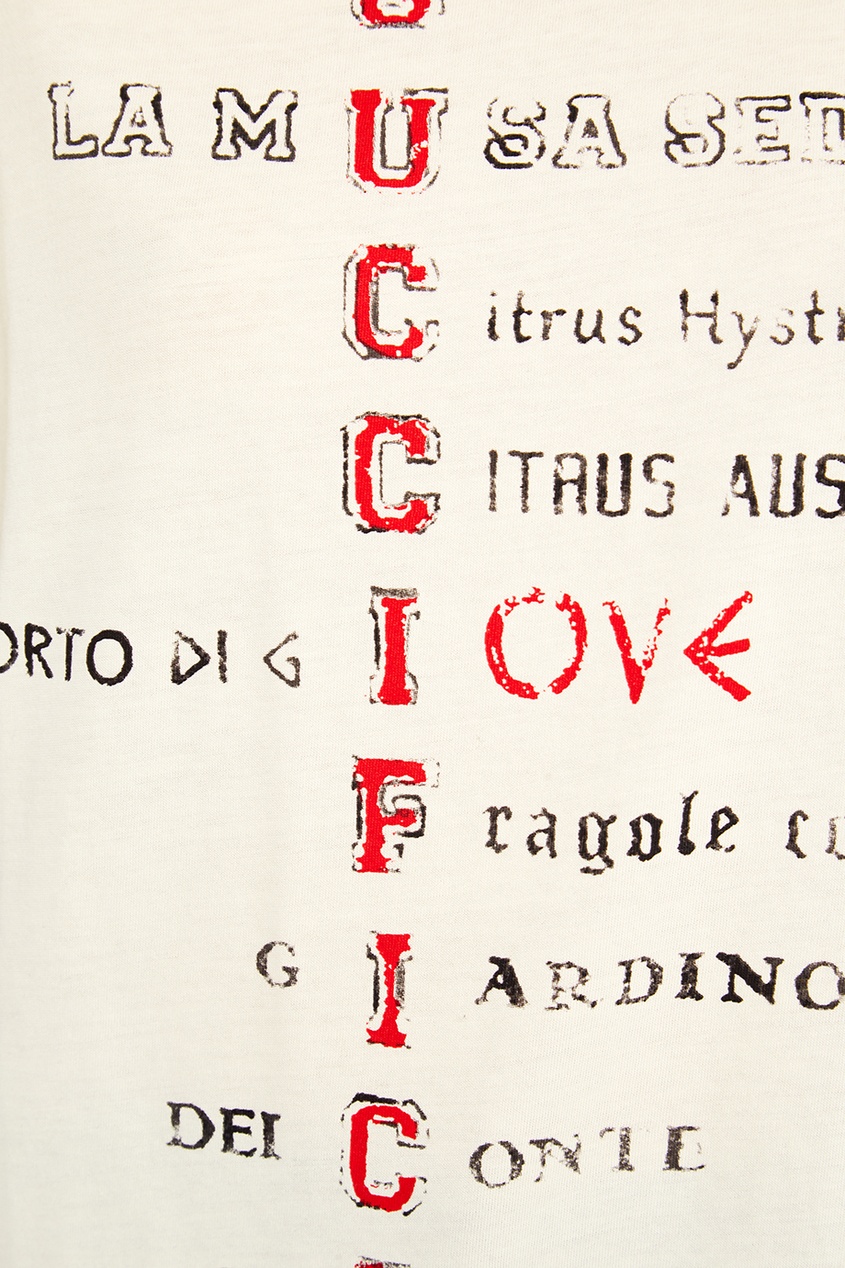 LA MUSA SED
Citrus Hystr
CITRUS AUS
ORTO DI GIOVE
Fragole co
GIARDINO
DEI CONTE